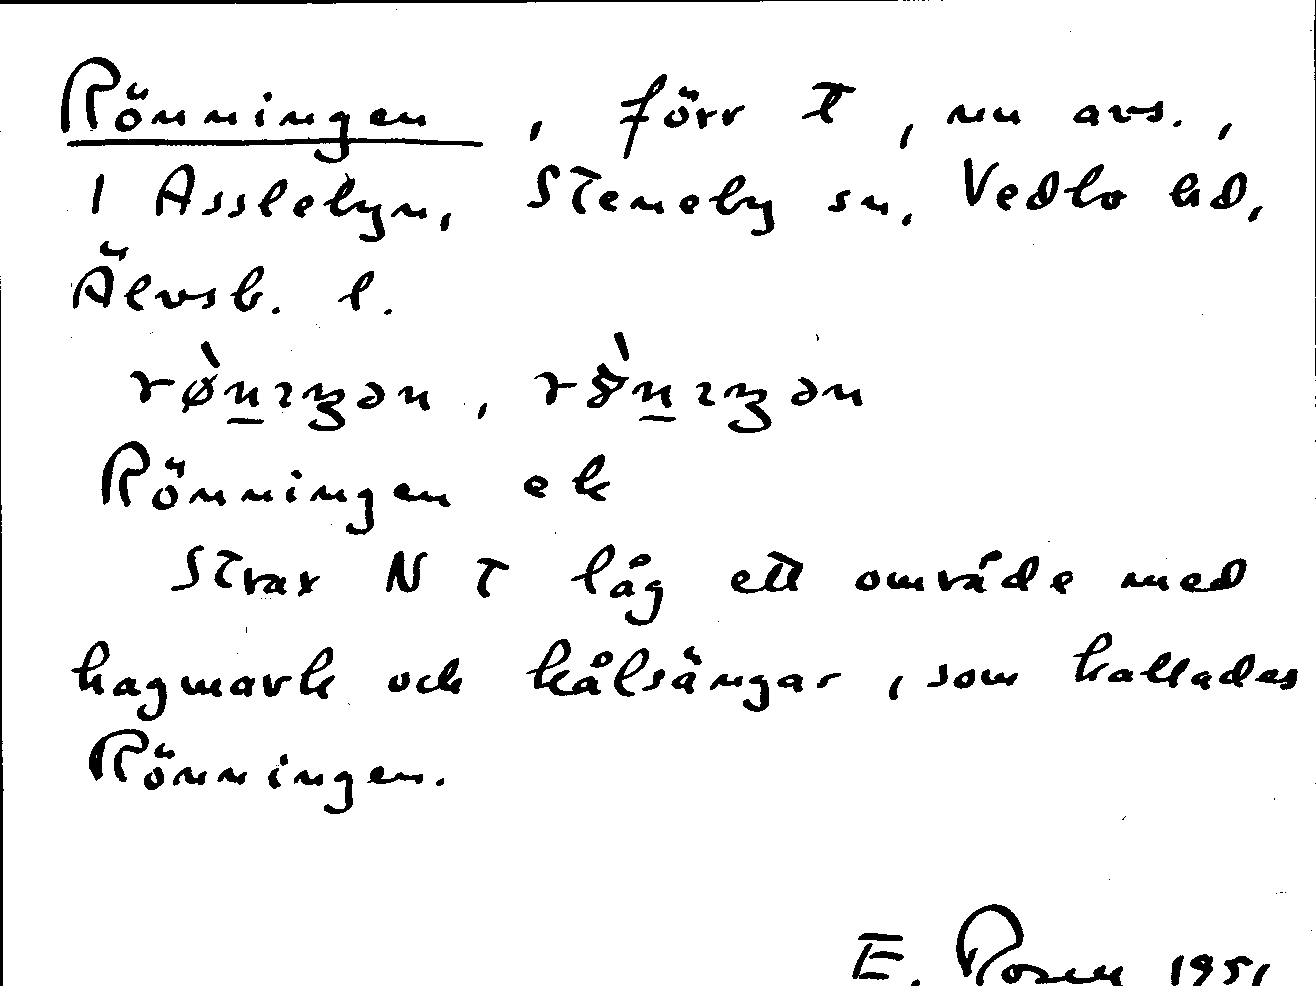 Rönningen, förr T, nu avs.,
1 Asslebyn, Steneby sn, Vedbo hd,
Älvsb. l.
Rönningen ek
Strax N T låg ett område med
hagmark och kålsängar, som kallades
Rönningen.
E. Rosen 1951